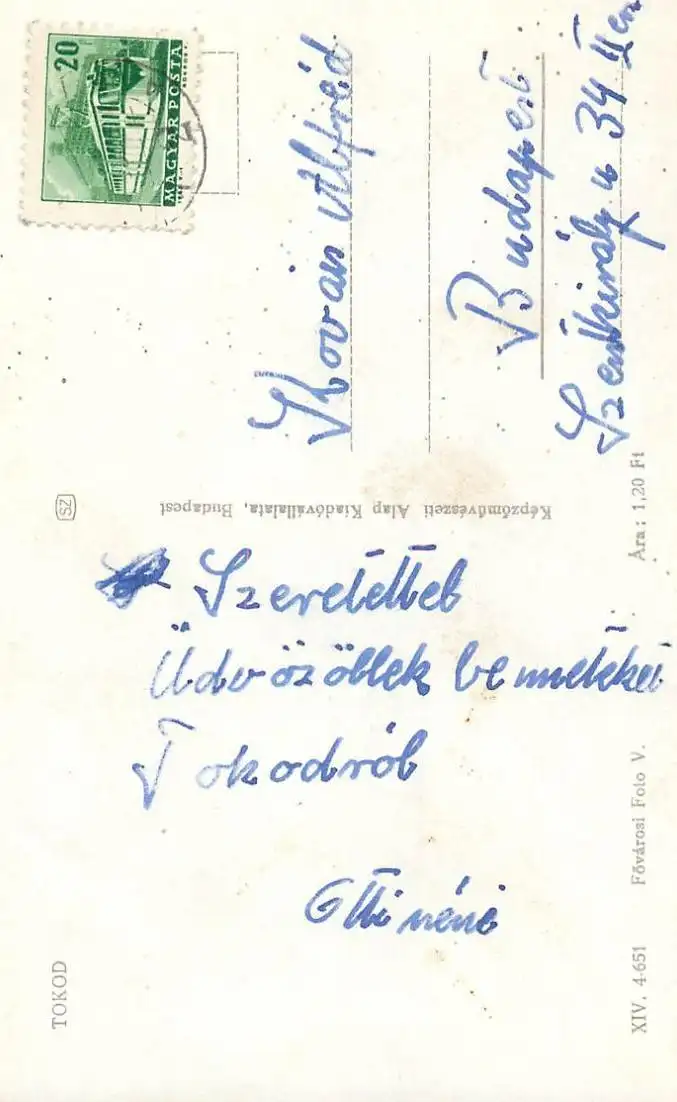 20
MAGYAR POSTA
Kovács Alfréd
Budapest
Szentkirály u 34 II em
Képzőművészeti Alap Kiadóvállalata, Budapest
SZ
Szeretettel
Üdvözöllek benneteket
Tokodról
Otti néni
TOKOD
XIV. 4-651
Fővárosi Foto V.
Ára: 1,20 Ft